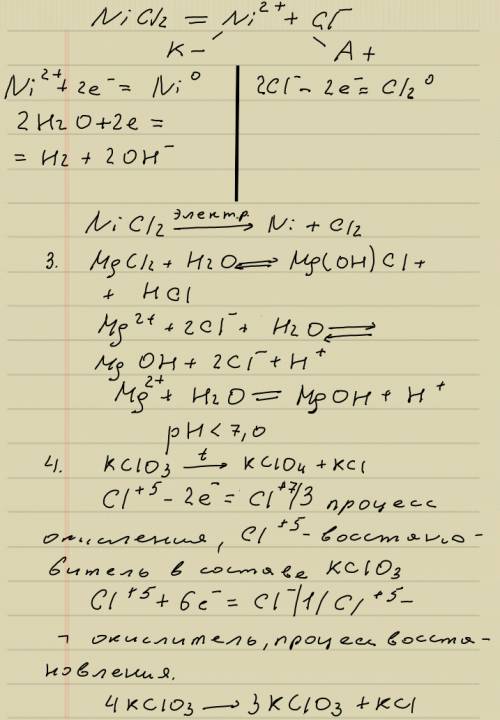 NiCl2 = Ni2+ + Cl-
K- A+
Ni2+ + 2e- = Ni0
2H2O+2e =
= H2 + 2OH-
2Cl- - 2e- = Cl2 0
NiCl2 электр. → Ni + Cl2
3. MgCl2 + H2O ⇌ Mg(OH)Cl +
+ HCl
Mg2+ + 2Cl- + H2O ⇌
MgOH + 2Cl- + H+
Mg2+ + H2O = MgOH + H+
pH < 7,0
4. KClO3 t → KClO4 + KCl
Cl+5 - 2e- = Cl+7/3 процесс
окисления, Cl+5 - восстано-
витель в составе KClO3
Cl+5 + 6e- = Cl-/1/ Cl+5 -
¬ окислитель, процесс восста-
новления.
4KClO3 → 3KClO3 + KCl